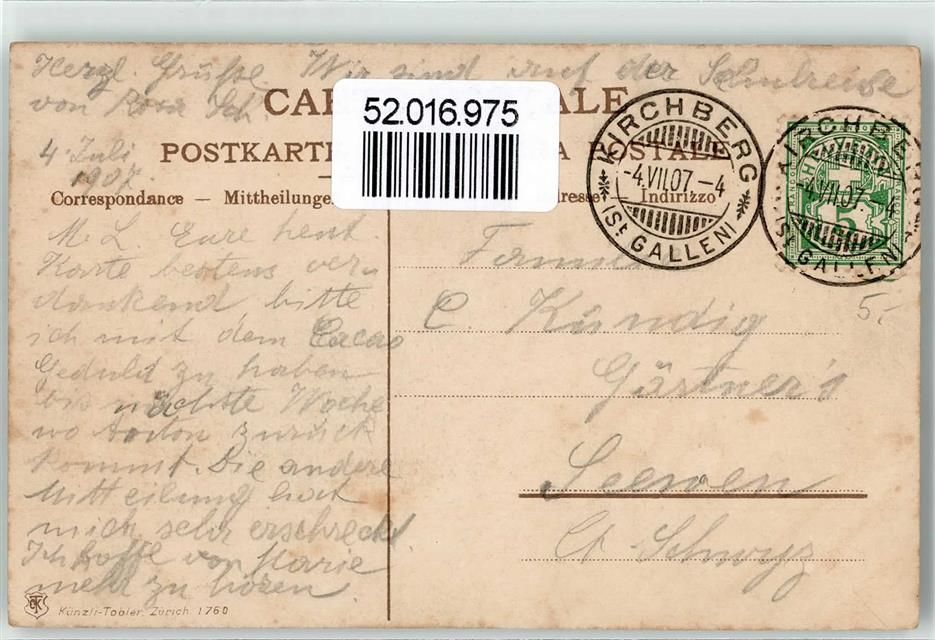 Herzl. Grüße. Wir sind auf der Schulreise
von Rosa Sch
CAR ALE
52.016.975
4. Juli
1907.
POSTKARTE A POSTALE
Correspondance – Mittheilunge Indirizzo
KIRCHBERG
-4.VII.07-4
(ST. GALLEN)
KIRCHBERG
-4.VII.07-4
(ST. GALLEN)
5
5.-
M. L. Eure heut.
Karte bestens ver-
dankend bitte
ich mit dem Cacao
Geduld zu haben
bis nächste Woche
wo Anton zurück
kommt. Die andere
Mitteilung hat
mich sehr erschreckt.
Ich hoffe von Marie
mehr zu hören.
C. Kündig
Gärtner's
Seewen
Ct. Schwyz
Künzli-Tobler, Zürich 1760